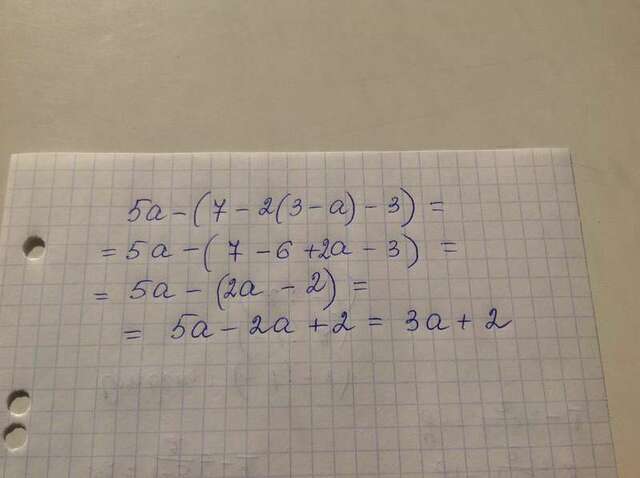 5a - (7 - 2(3 - a) - 3) =
= 5a - (7 - 6 + 2a - 3) =
= 5a - (2a - 2) =
= 5a - 2a + 2 = 3a + 2